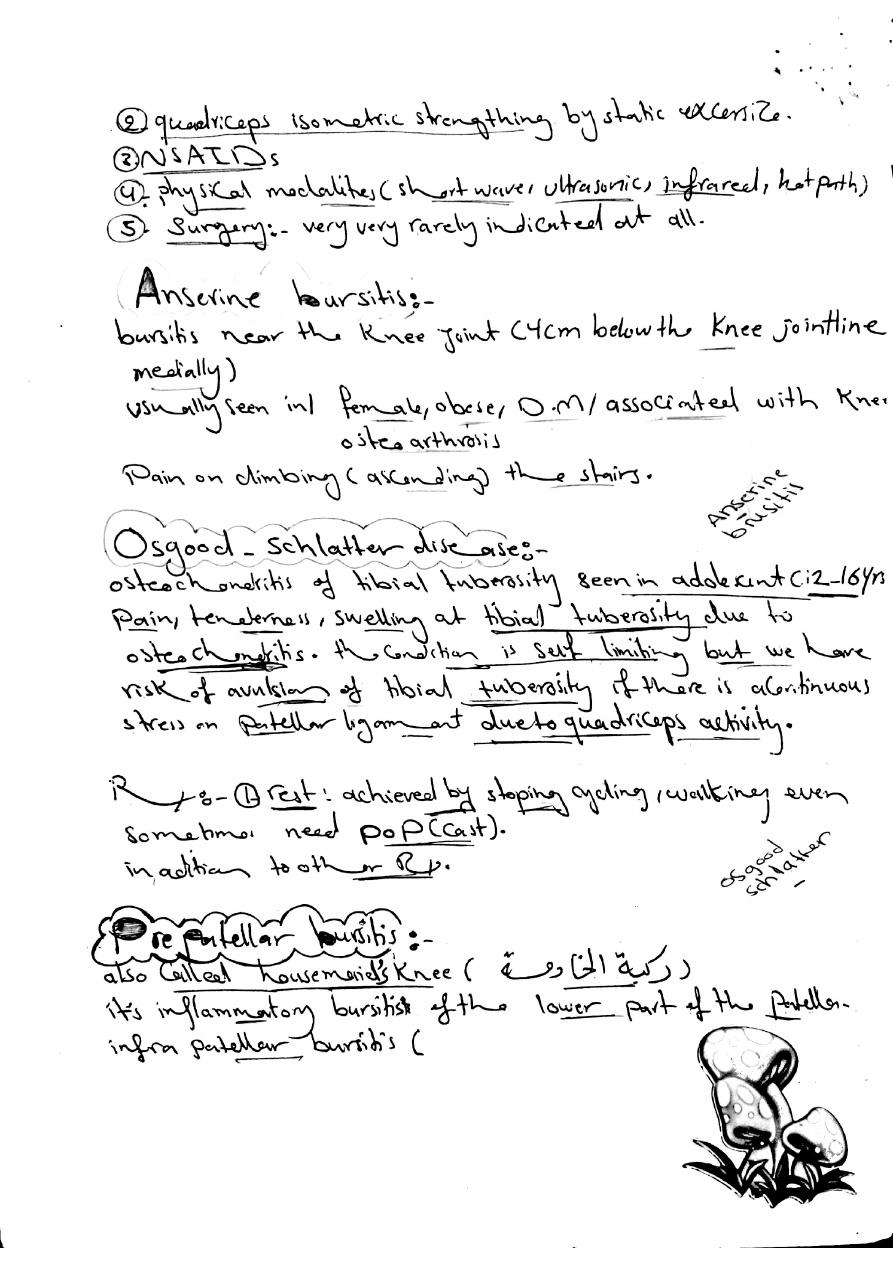 ② quadriceps isometric strengthing by static excersize.
③ NSAIDs
④ physical modalites (short wave, ultrasonic, infrared, hot path)
⑤ Surgery:- very very rarely indicated at all.
Anserine bursitis:-
bursitis near the Knee joint (4cm below the Knee jointline
medially)
usually seen in/ female, obese, D.M/ associated with Knee
osteoarthrosis
Pain on climbing (ascending) the stairs.
Anserine
brusitis
Osgood - schlatter disease:-
osteochondritis of tibial tuberosity seen in adolescent (12-16yrs
Pain, tenderness, swelling at tibial tuberosity due to
osteochondritis. the condition is self limiting but we have
risk of avulsion of tibial tuberosity if there is a continuous
stress on patellar ligament due to quadriceps activity.
Rx:- ① rest: achieved by stoping cycling, walking even
sometimes need pop (cast).
in adition to other Rx.
osgood
schlatter
Pre patellar bursitis:-
also called housemaid's Knee (ركبة الخادمة)
it's inflammatory bursitis of the lower part of the patella.
infra patellar bursitis (